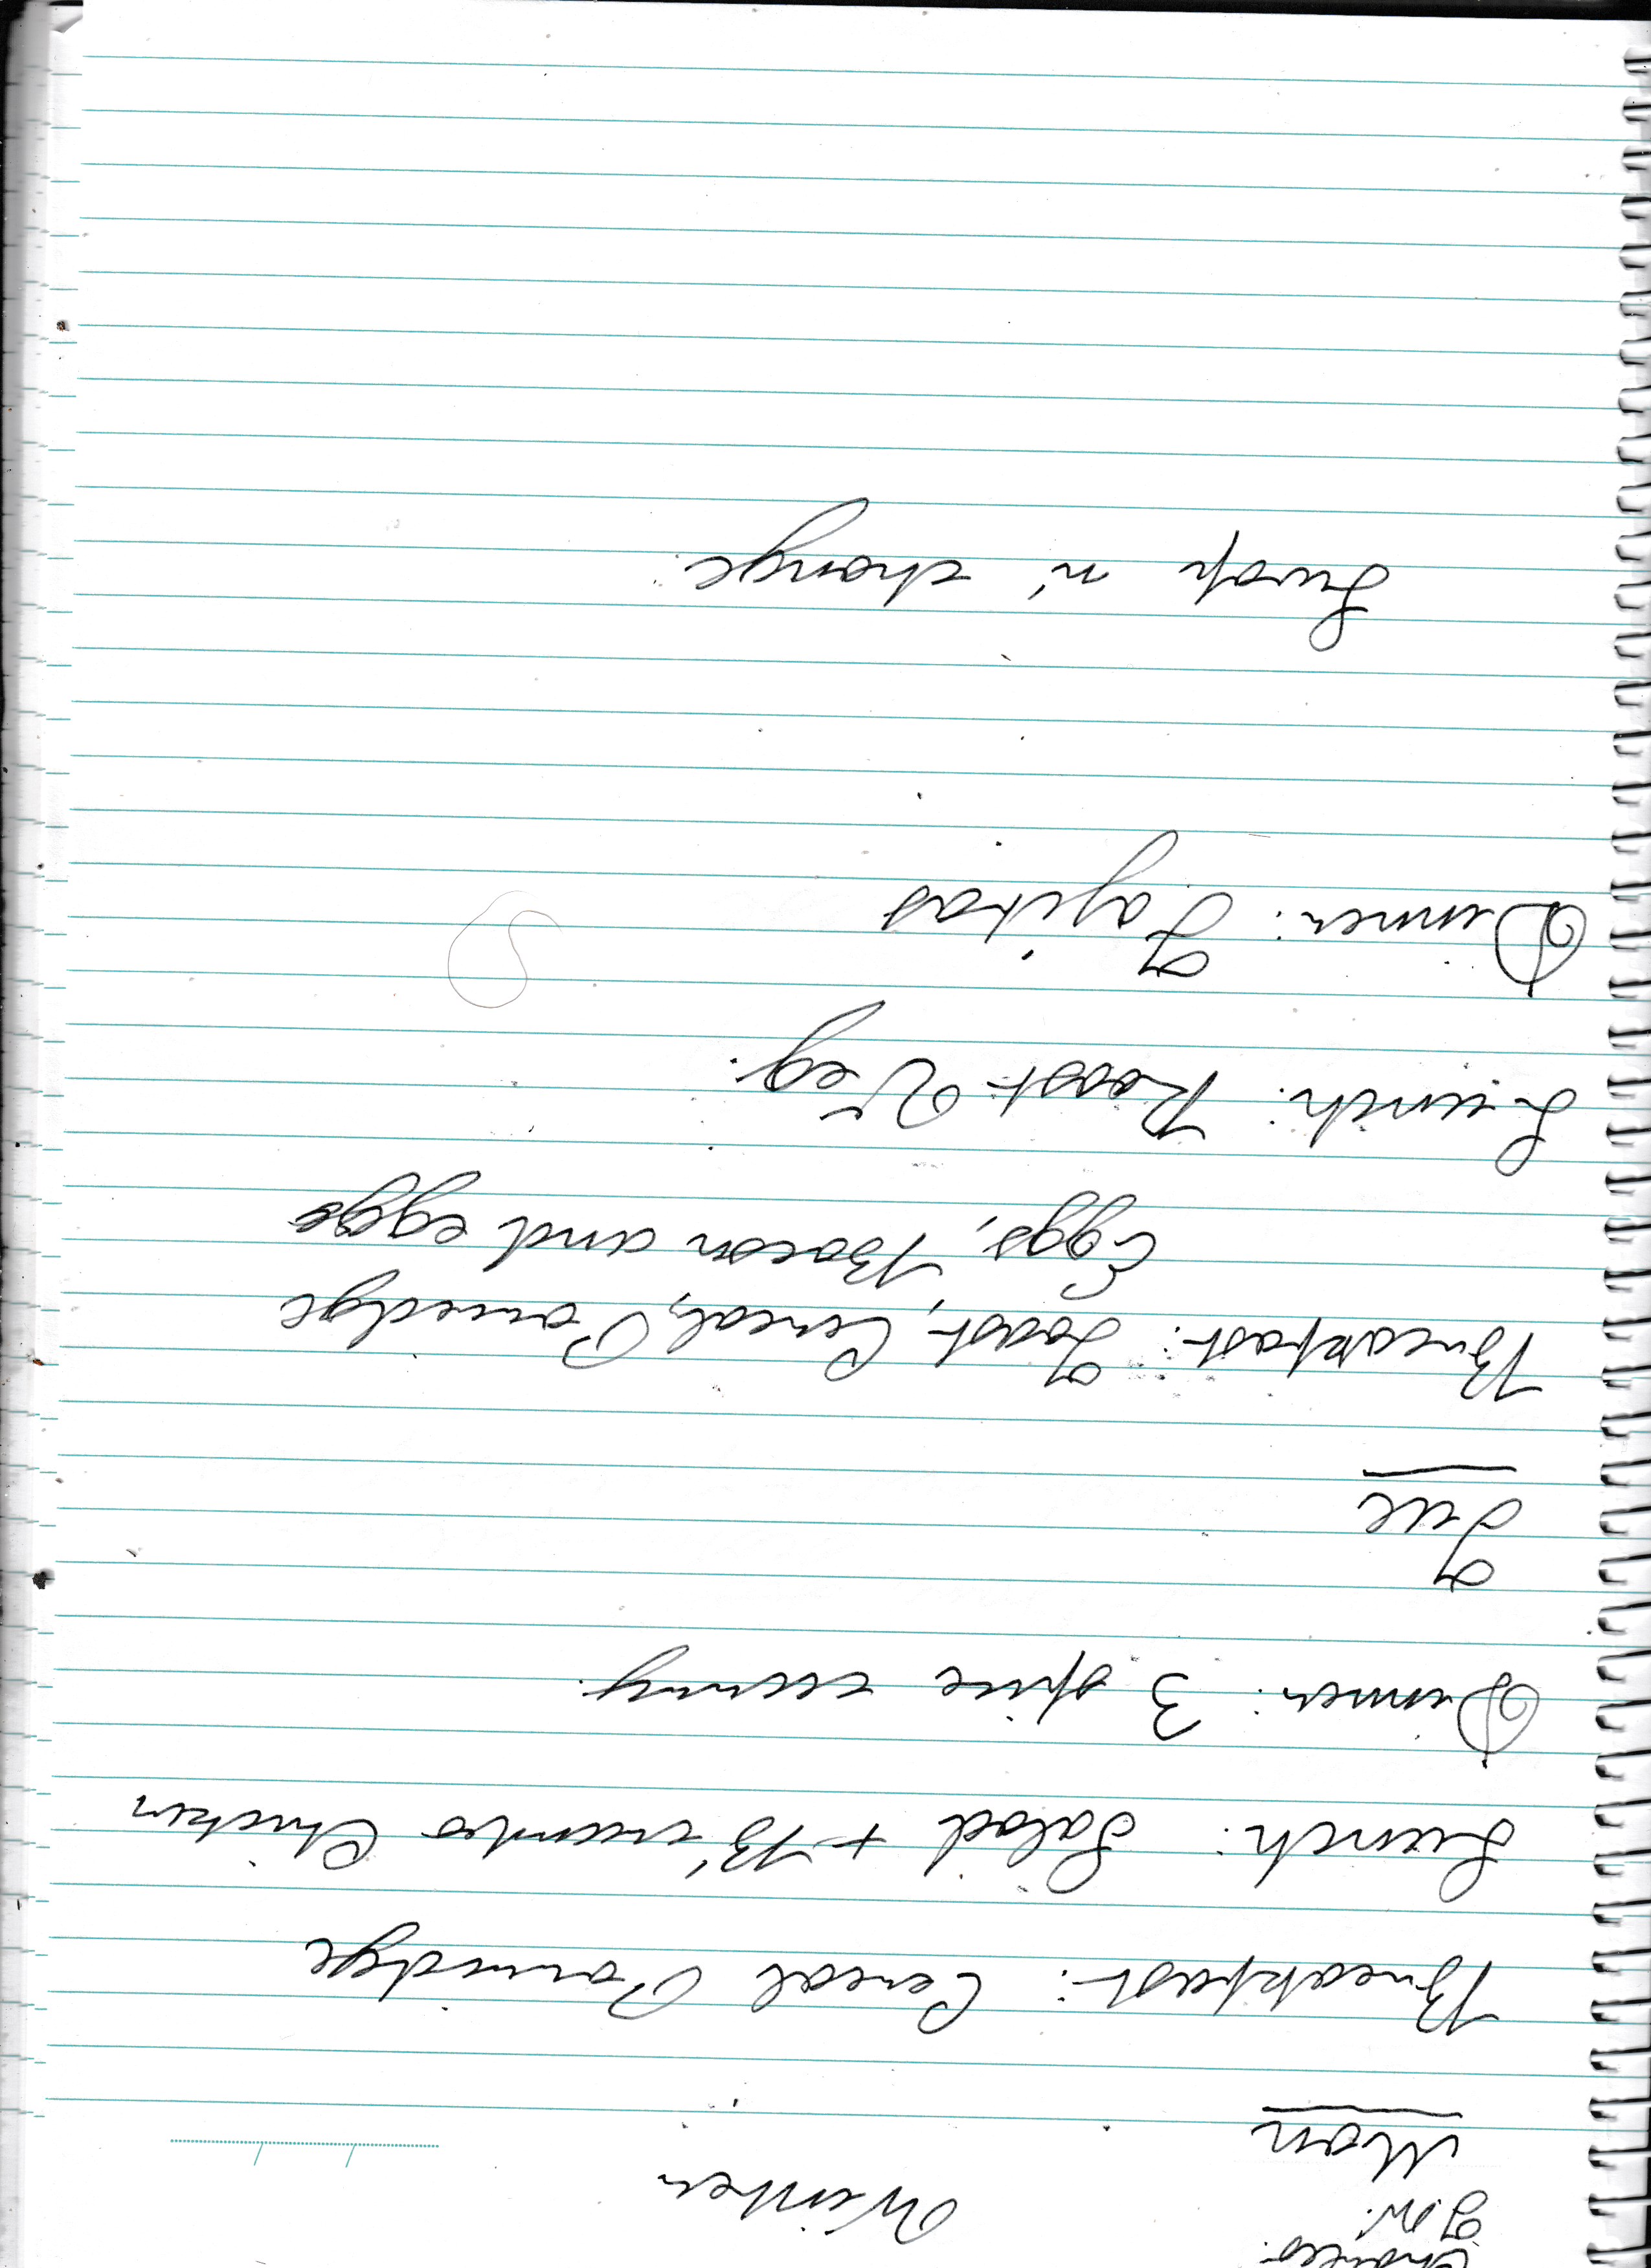 Winter
Mon
Breakfast: Cereal Porridge
Lunch: Salad + B'crumbs Chicken
Dinner: 3 spice curry.
Tue
Breakfast: Toast, Cereal, Porridge
Eggs, Bacon and eggs
Lunch: Roast Veg.
Dinner: Fajitas
Swap n' change.